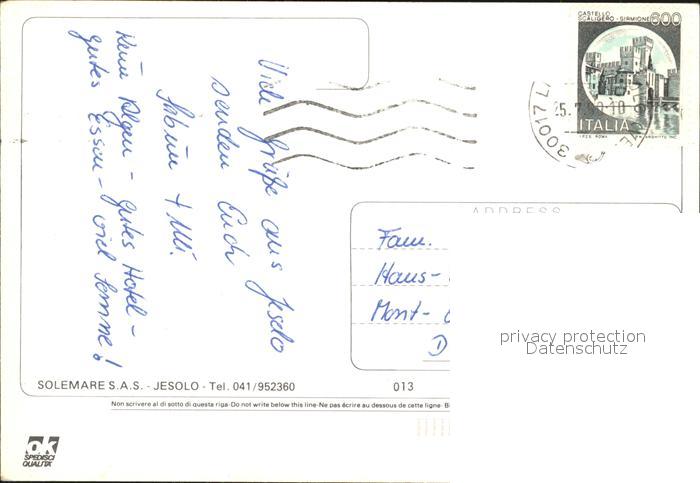 CASTELLO
SCALIGERO - SIRMIONE
600
ITALIA
I.P.Z.S. ROMA
30017
Viele Grüße aus Jesolo
senden Euch
Sabine + Uli.
Keine Algen - gutes Hotel -
gutes Essen - viel Sonne!
ADDRESS
Fam.
Haus-
Mont-
D
privacy protection
Datenschutz
SOLEMARE S.A.S. - JESOLO - Tel. 041/952360
013
Non scrivere al di sotto di questa riga-Do not write below this line-Ne pas écrire au dessous de cette ligne-
ok
SPEDISCI
QUALITA'